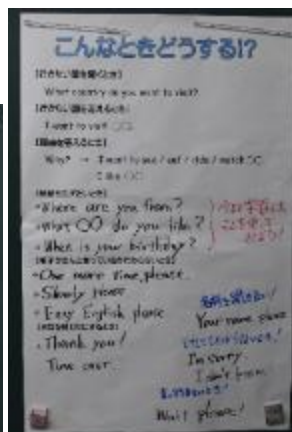 こんなときどうする!?
【行きたい国を聞くとき】
What country do you want to visit?
【行きたい国を答えるとき】
I want to visit ○○.
【理由を答えるとき】
Why? → I want to see / eat / ride / watch ○○
I like ○○.
・Where are you from?
・What ○○ do you like?
・When is your birthday?
・One more time, please.
・Slowly please
・Easy English please
・Thank you!
Time over.
名前を聞きたい!
Your name please
I'm sorry
I don't know.
Wait please!